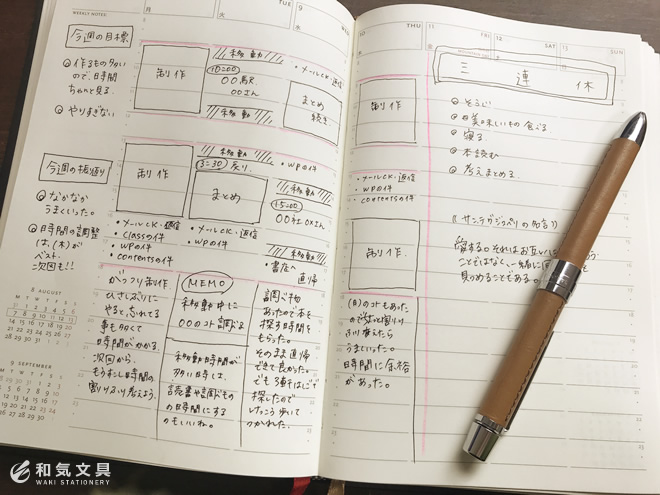 WEEKLY NOTES
月
火
9
水
今週の目標
◎ 作るもの多い
ので、日時間
ちゃんと見る。
◎ やりすぎない
今週の振り返り
◎ なかなか
うまくいった。
◎ 日時間の調整
は、(木)が
ベスト。
次回も!!
8 AUGUST
M T W T F S S
9 SEPTEMBER
M T W T F S S
制作
移動
10:00
〇〇駅
〇〇さん
移動
・メールCK・返信
まとめ
続き
制作
移動
戻り
まとめ
・WPの件
移動
15:00
〇〇社〇×さん
移動
・書店へ
直帰
・メールCK・返信
・classの件
・WPの件
・contentsの件
・メールCK・返信
・WPの件
ガッツリ制作。
ひさしぶりに
やると、忘れてる
事も多くて
時間がかかる。
次回から、
もう少し時間の
割りふり考えよう。
MEMO
移動中に
〇〇のコト調べる
移動時間が
多い時は、
読書や調べもの
の時間にする
のもいいね。
調べ物
あったので本を
探す時間を
もらった。
そのまま直帰
できて良かった。
でも3軒はしごで
探したので
けっこう歩いて
つかれた。
10
THU
木
11
FRI
金
12
SAT
土
13
SUN
日
三連休
制作
◎ そうじ
◎ 美味しいもの食べる。
◎ 寝る
◎ 本読む
◎ 考えまとめる。
・メールCK・返信
・WPの件
・contentsの件
制作
《サンテグジュペリの名言》
愛する。それはお互いに
ことではなく、一緒に同
見つめることである。
(月)のコトもあった
ので
うまくいった。
時間に余裕
があった。
和気文具
WAKI STATIONERY